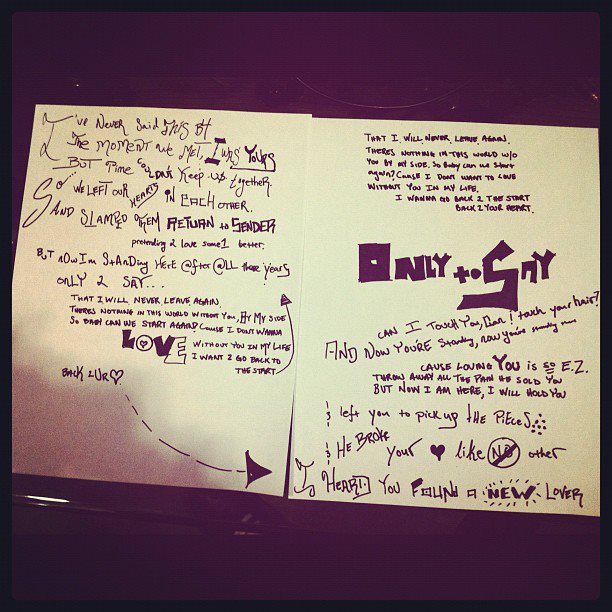 I've Never Said this Bt
The moment we met, I was Yours
But Time couldn't Keep up together
So... we left our hearts in each other.
And stamped them Return to Sender
pretending 2 love some1 better.
But now I'm standing here @fter @ll these years
only 2 say...
That I will never leave again.
Theres nothing in this world without you, By my side
So baby can we start again? Cause I dont wanna
Love without you in my life
I want 2 go back to
the start
Back 2 Ur ♡
That I will never leave again.
Theres nothing in this world w/o
you by my side. So baby can we start
again? Cause I dont want to love
without you in my life.
I wanna go back 2 the start
Back 2 your heart.
Only to Say
Can I touch you, Can I touch your hair?
And now you're standing, now you're standing
Cause loving you is so E.Z.
Throw away all the pain he sold you
But now I am here, I will hold you
& left you to pick up the pieces
& He broke your ♥ like no other
I heard you found a new lover